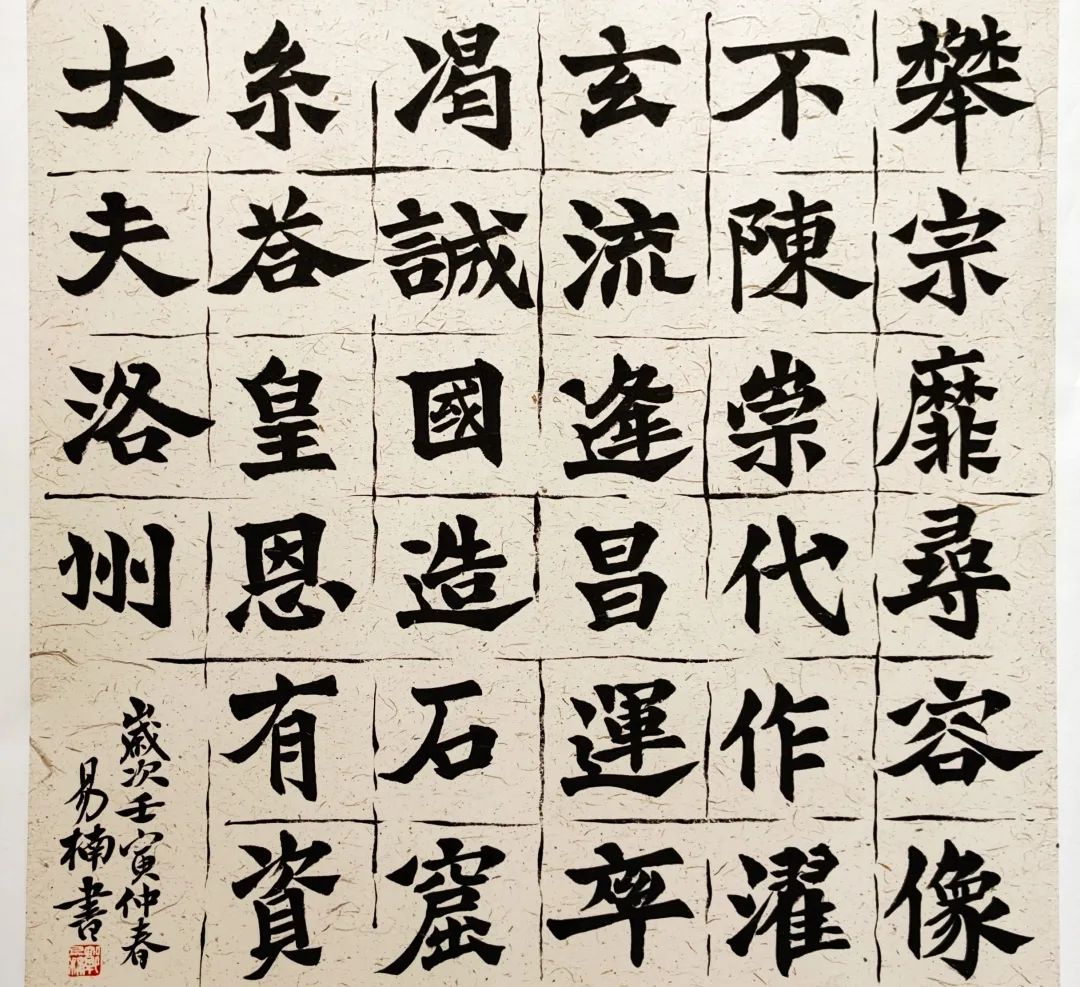 攀宗靡尋容像
不陳崇代作濯
玄流逢昌運率
渴誠國造石窟
糸荅皇恩有資
大夫洛州
歲次壬寅仲春
易楠書